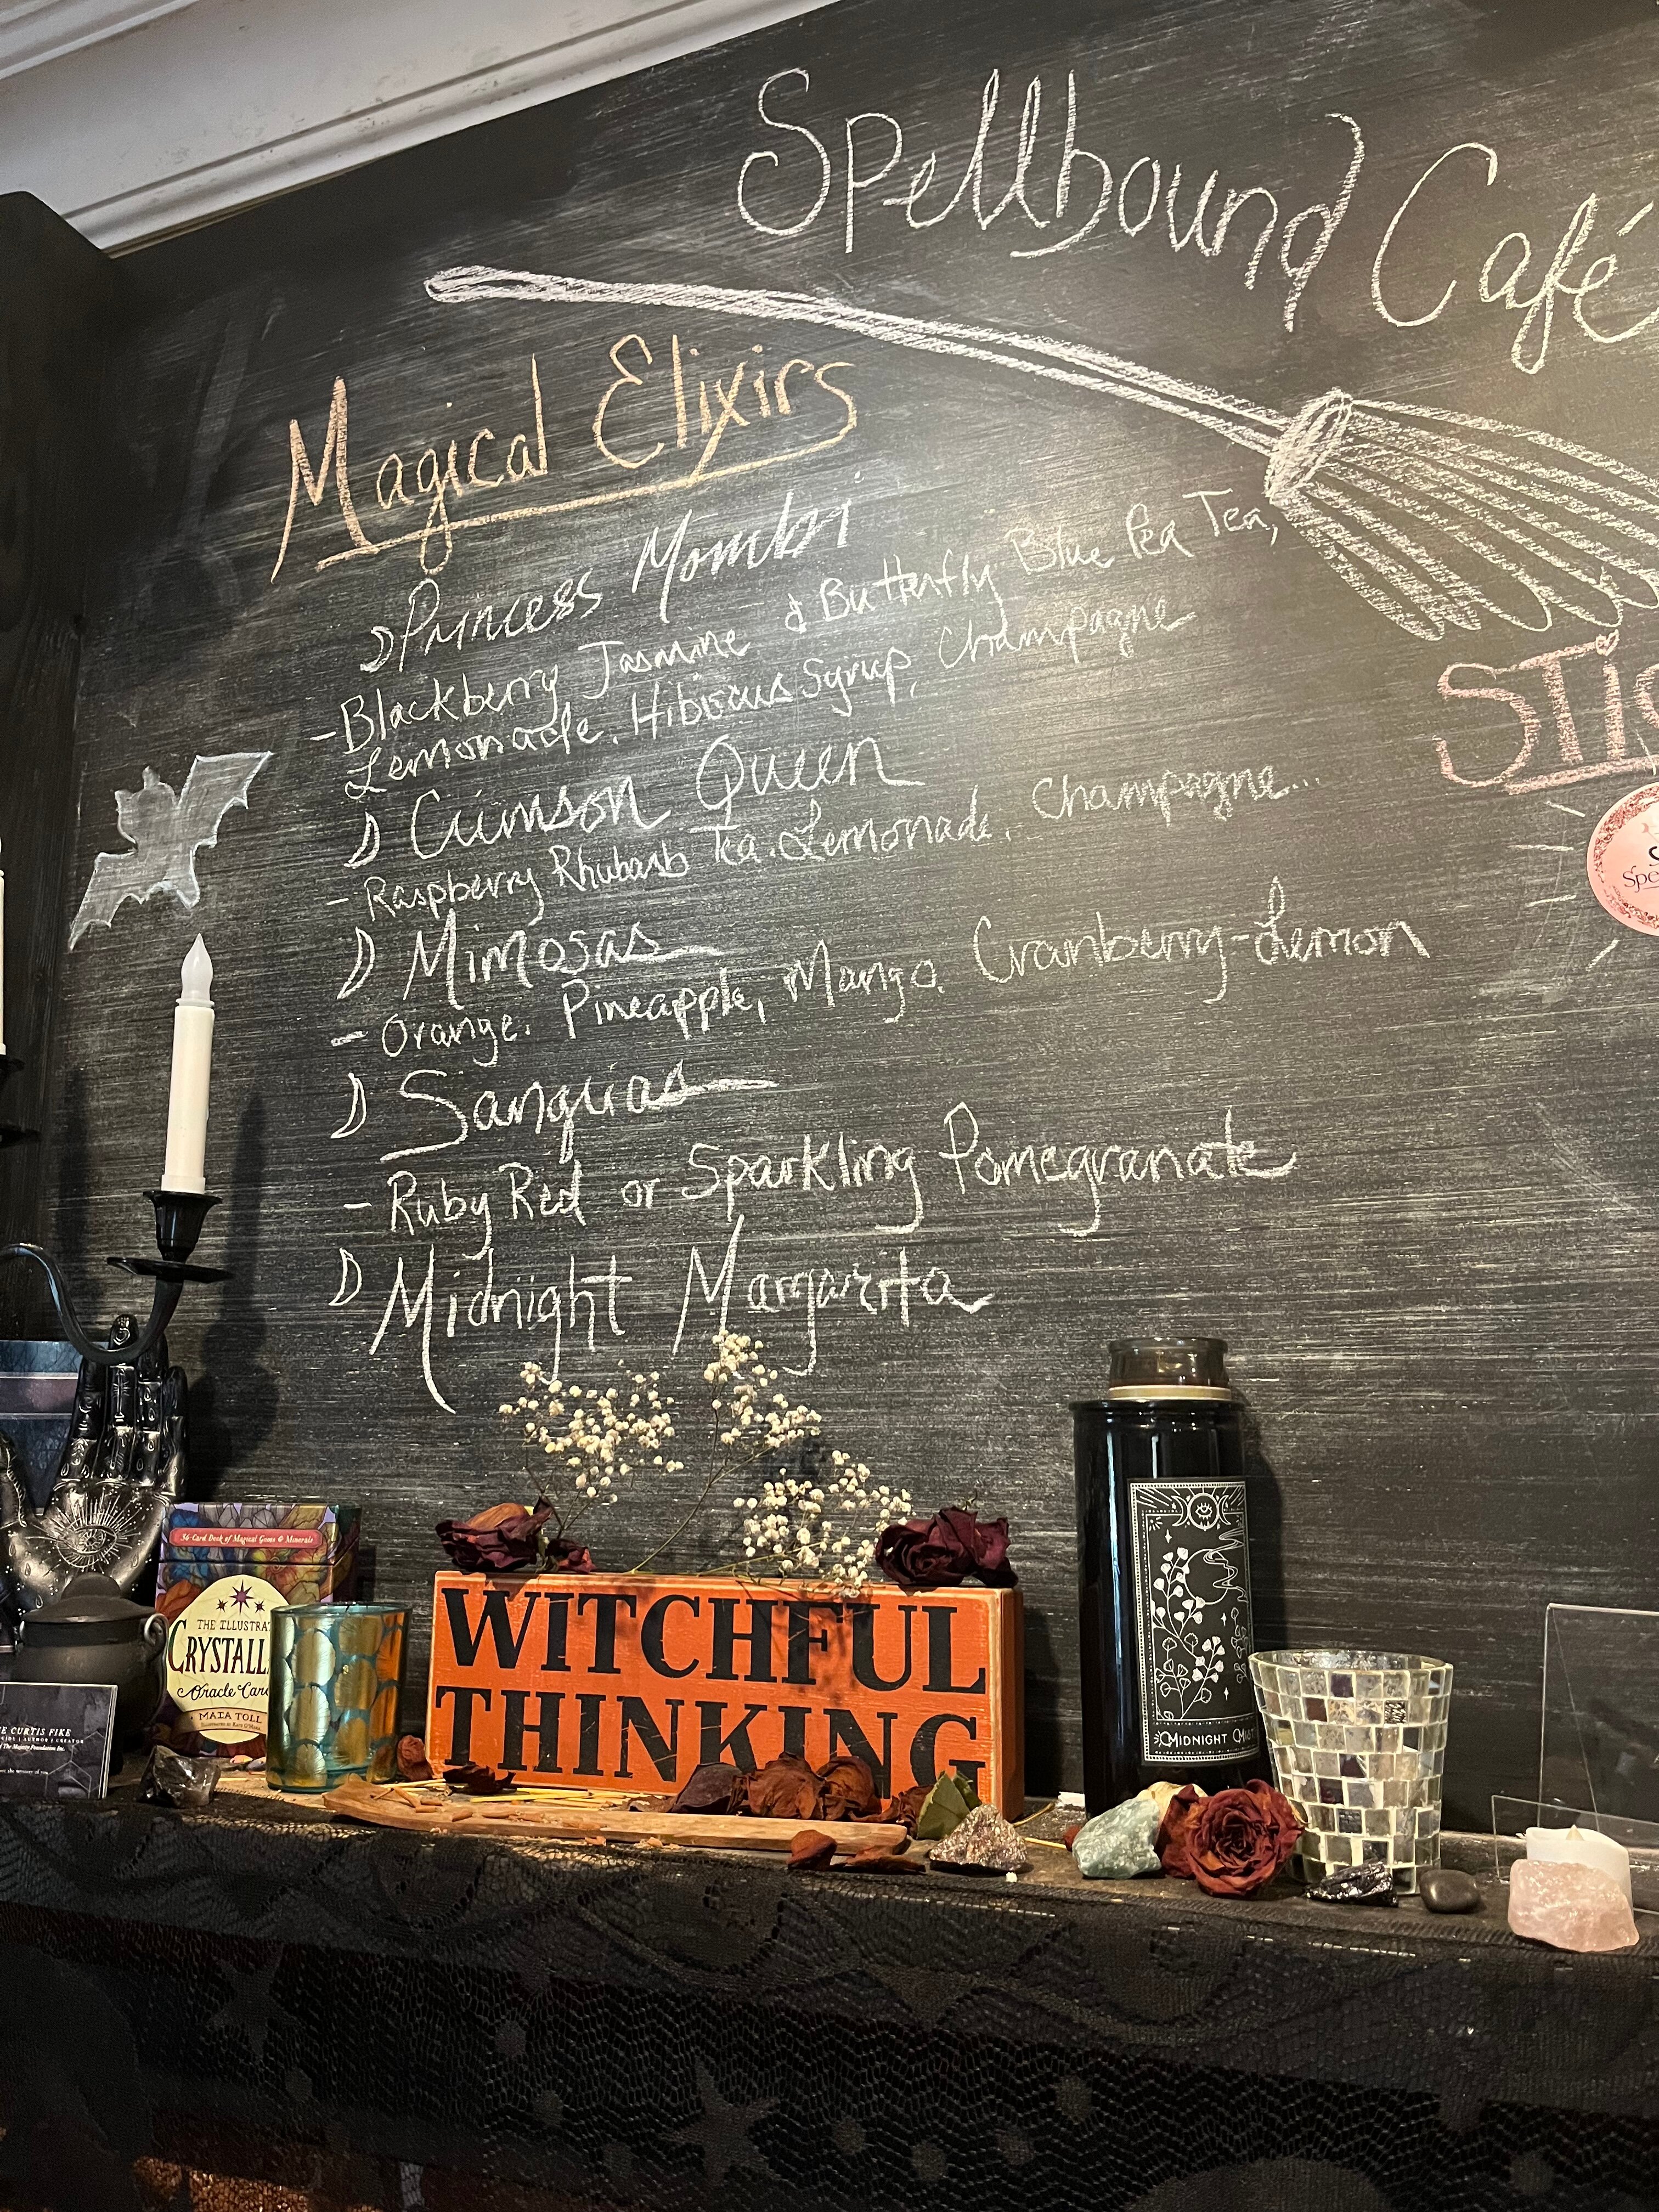 Spellbound Café
Magical Elixirs
Princess Mombi
- Blackberry Jasmine & Butterfly Blue Pea Tea,
Lemonade, Hibiscus Syrup, Champagne
Crimson Queen
- Raspberry Rhubarb Tea, Lemonade, Champagne...
Mimosas
- Orange, Pineapple, Mango, Cranberry-Lemon
Sangrias
- Ruby Red or Sparkling Pomegranate
Midnight Margarita
STic
Spe
36-Card Deck of Magical Gems & Minerals
THE ILLUSTRAT
CRYSTALL
Oracle Card
MAIA TOLL
WITCHFUL
THINKING
MIDNIGHT MIST
E CURTIS FIKE
AUTHOR | CREATOR